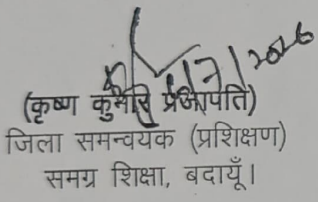 (कृष्ण कुमार प्रजापति)
जिला समन्वयक (प्रशिक्षण)
समग्र शिक्षा, बदायूँ।